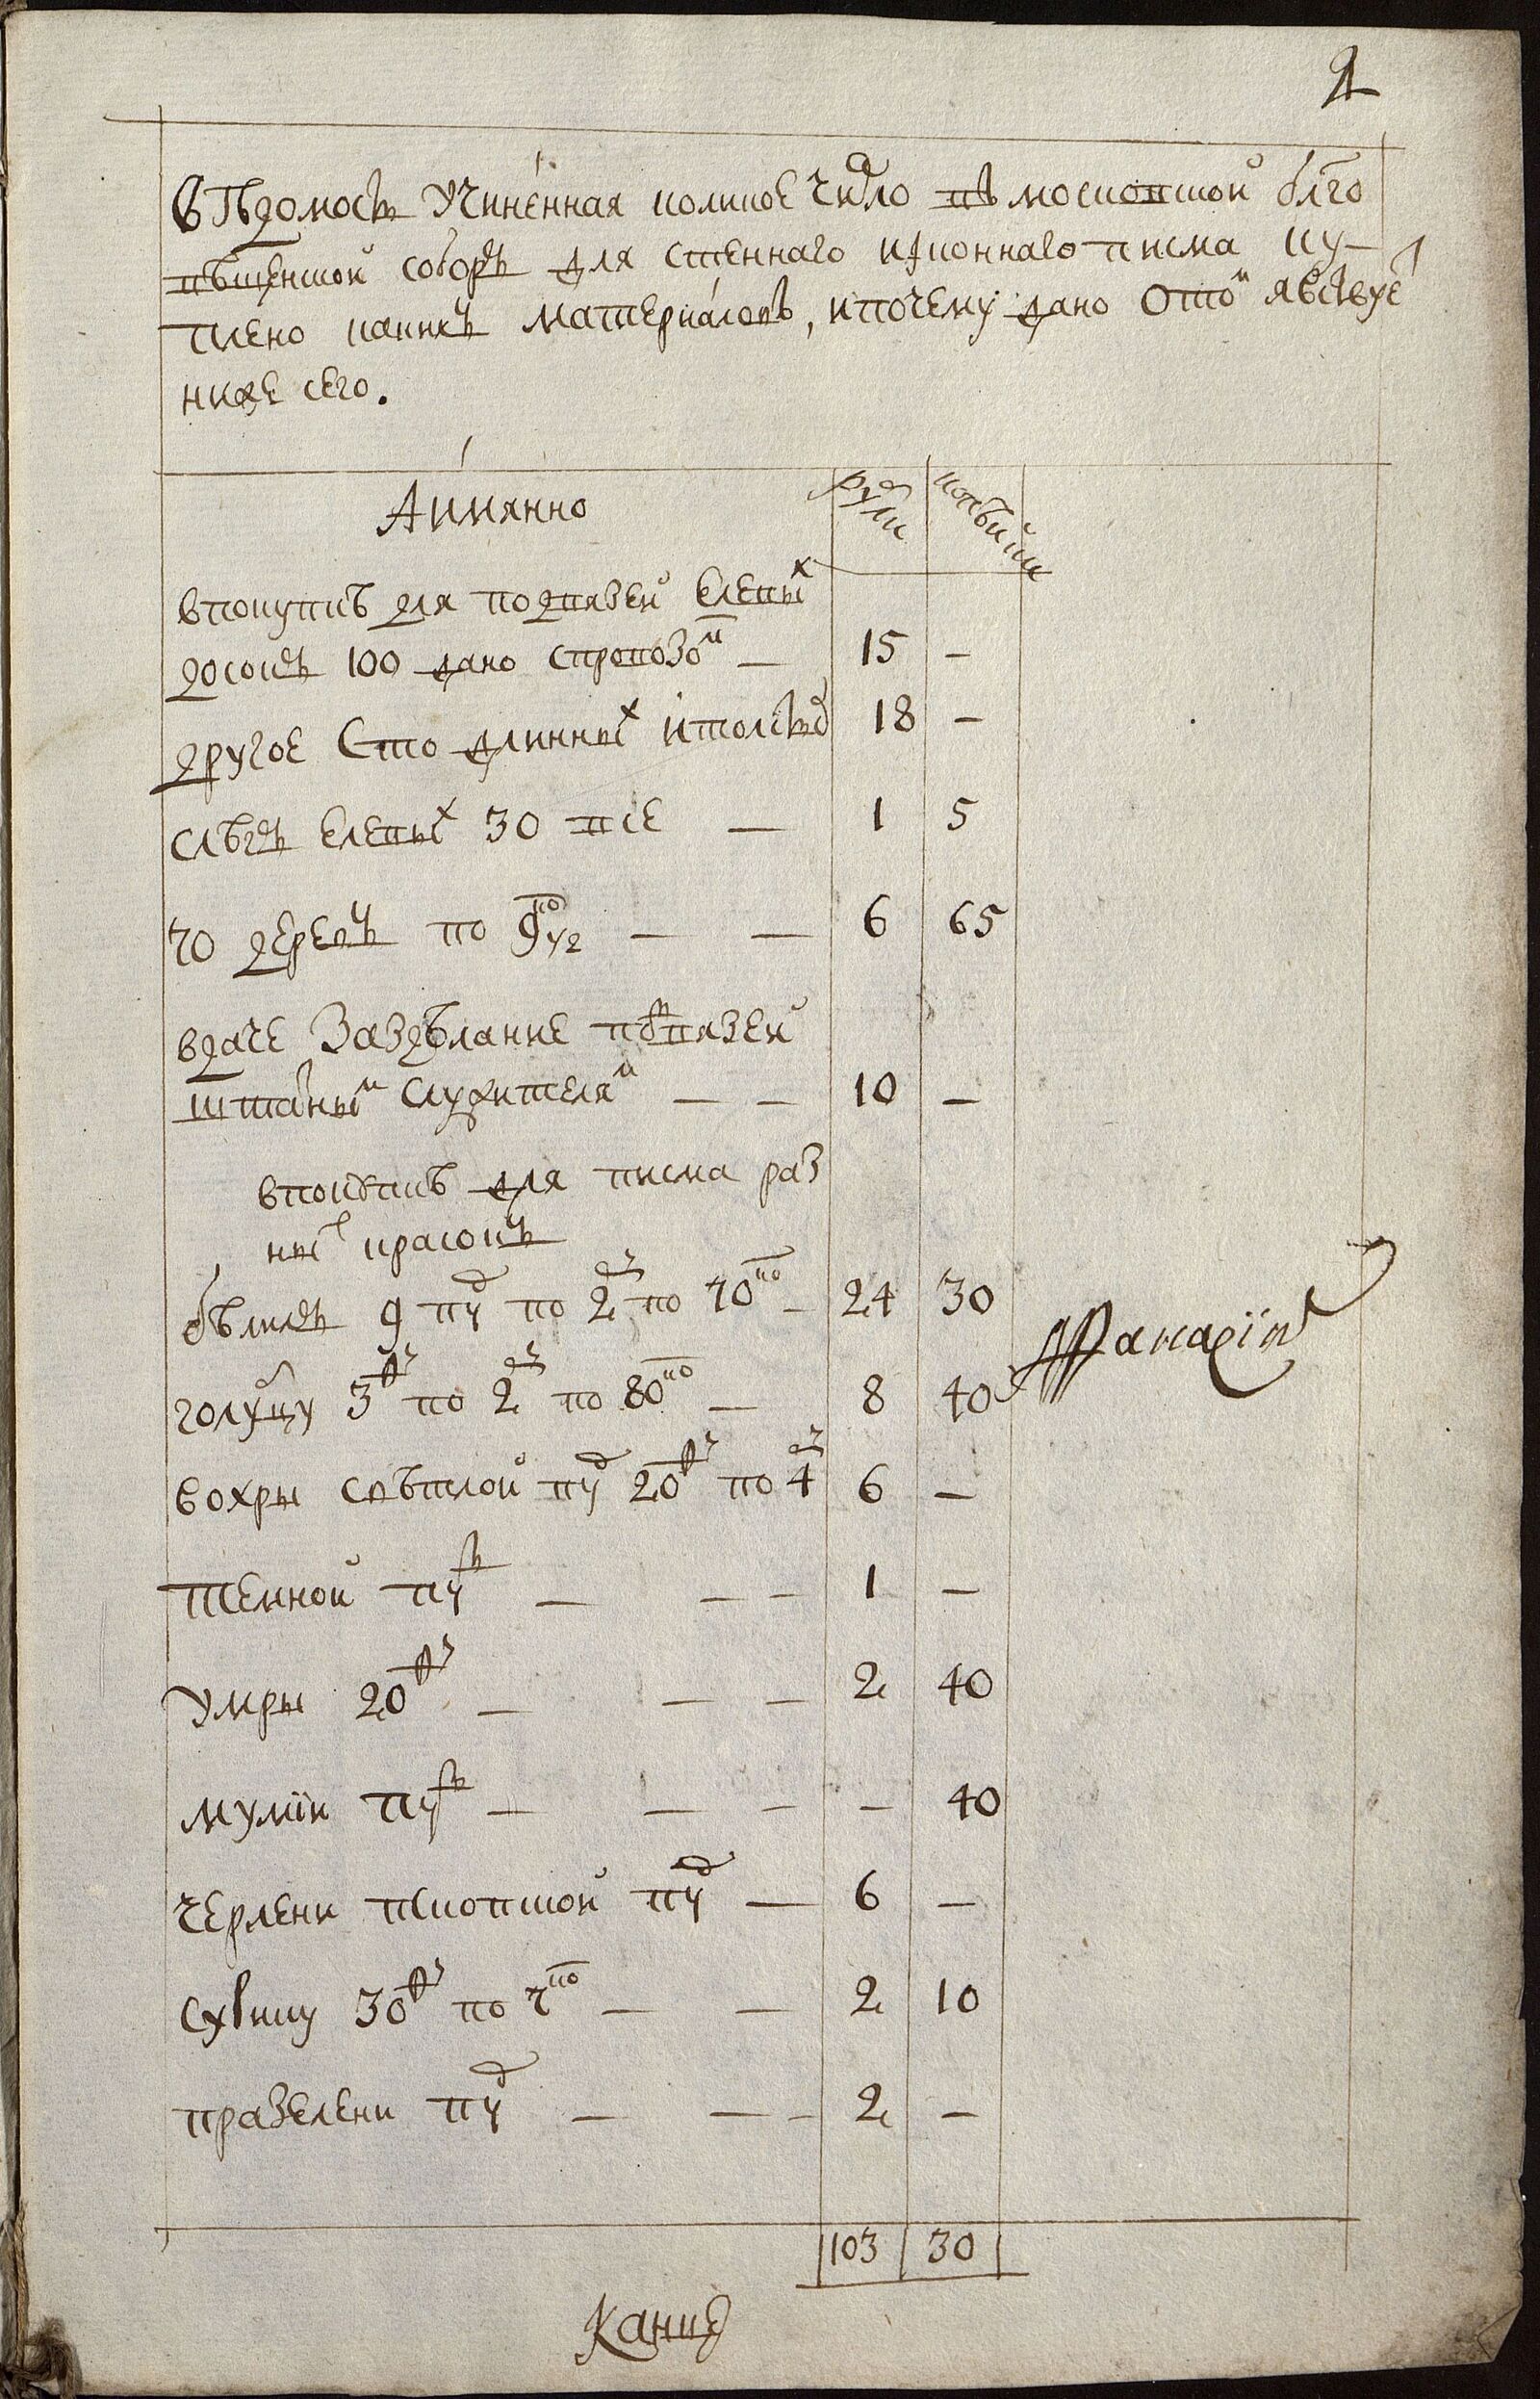 2
Вѣдомость Учиненная коликое число въ московской блго
вѣщенской соборъ для стеннаго иконнаго писма ку-
плено какихъ материаловъ, ипочему дано Отом явствуе
ниже сего.
Аимянно
рубли
копѣйки
впокупкѣ для подвязей Елевых
досокъ 100 дано спровозом — 15 —
другое Сто длинных итолсты 18 —
слѣгъ Елевых 30 все — 1 5
70 деревъ по 9 ко 1/2 — — 6 65
вдаче Заздѣлание повязей
штатным Служителям — — 10 —
впокупкѣ для писма раз
ных красокъ
бѣлилъ 9 пуд по 2 ру по 70 ко — 24 30
голубцу 3 ф по 2 ру по 80 ко — 8 40
вохры свѣтлой пуд 20 ф по 4 ру 6 —
темной пуд — — — 1 —
Умры 20 ф — — — 2 40
мумїи пуд — — — — 40
черлени псковской пуд — 6 —
Сурику 30 ф по 7 ко — — 2 10
празелени пуд — — — 2 —
103 30